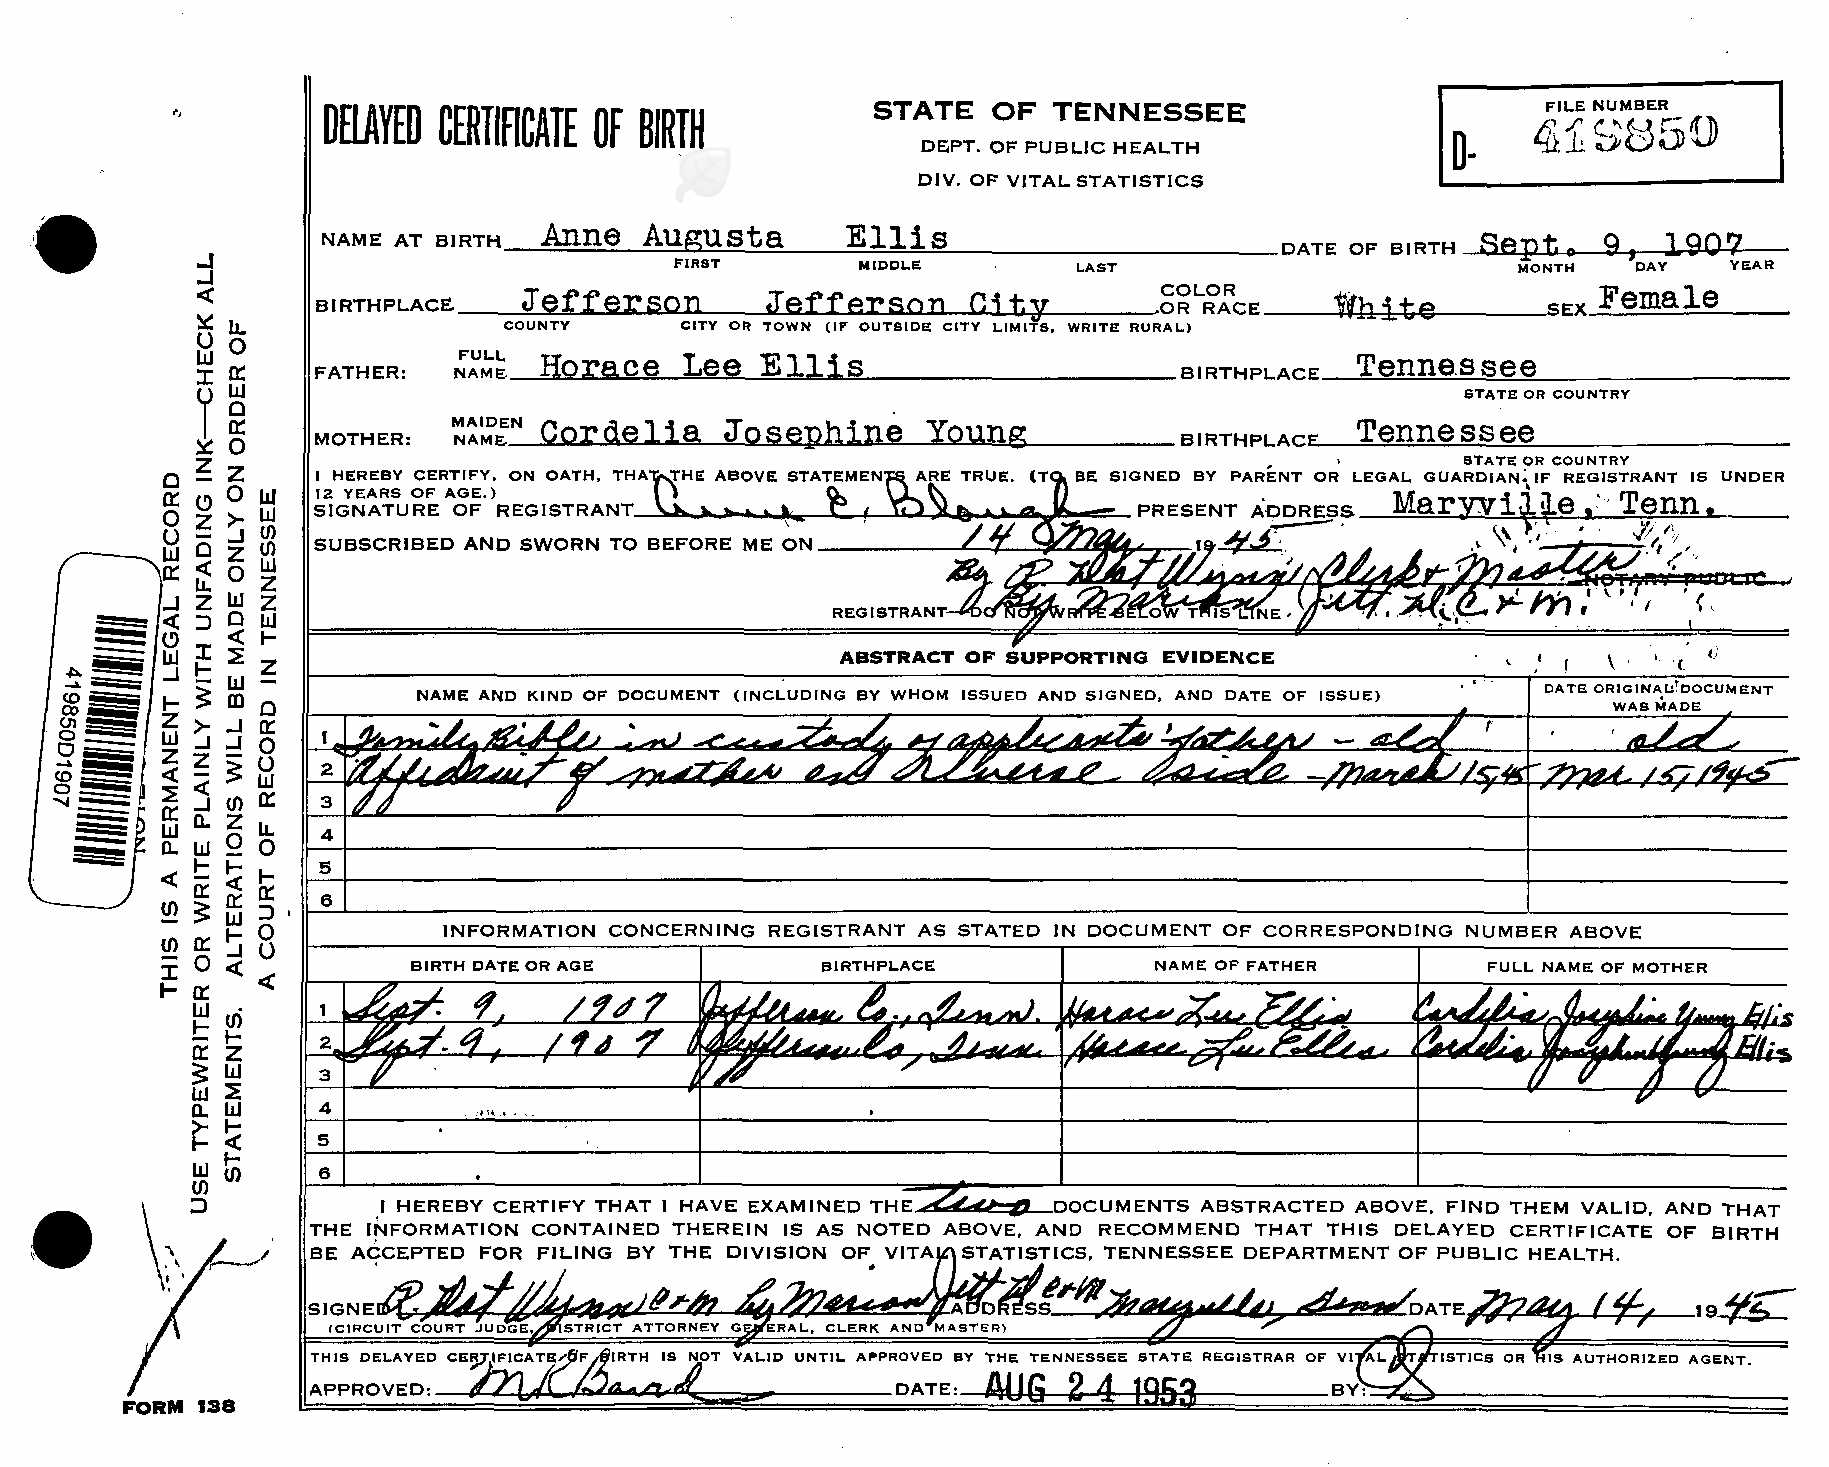 DELAYED CERTIFICATE OF BIRTH
STATE OF TENNESSEE
DEPT. OF PUBLIC HEALTH
DIV. OF VITAL STATISTICS
FILE NUMBER
D- 419850
NAME AT BIRTH Anne Augusta Ellis DATE OF BIRTH Sept. 9, 1907
FIRST MIDDLE LAST MONTH DAY YEAR
BIRTHPLACE Jefferson Jefferson City COLOR OR RACE White SEX Female
COUNTY CITY OR TOWN (IF OUTSIDE CITY LIMITS, WRITE RURAL)
FATHER: FULL NAME Horace Lee Ellis BIRTHPLACE Tennessee
STATE OR COUNTRY
MOTHER: MAIDEN NAME Cordelia Josephine Young BIRTHPLACE Tennessee
STATE OR COUNTRY
I HEREBY CERTIFY, ON OATH, THAT THE ABOVE STATEMENTS ARE TRUE. (TO BE SIGNED BY PARENT OR LEGAL GUARDIAN IF REGISTRANT IS UNDER
12 YEARS OF AGE.)
SIGNATURE OF REGISTRANT Anne E. Blough PRESENT ADDRESS Maryville, Tenn.
SUBSCRIBED AND SWORN TO BEFORE ME ON 14 May 1945
By R. Dot Wynn, Clerk & Master NOTARY PUBLIC
By Marian Jett. D.C. & M.
REGISTRANT—DO NOT WRITE BELOW THIS LINE.
ABSTRACT OF SUPPORTING EVIDENCE
NAME AND KIND OF DOCUMENT (INCLUDING BY WHOM ISSUED AND SIGNED, AND DATE OF ISSUE) DATE ORIGINAL DOCUMENT WAS MADE
1 Family Bible in custody of applicants' father - old old
2 Affidavit of mother on reverse side - March 15, 45 Mar 15, 1945
3
4
5
6
INFORMATION CONCERNING REGISTRANT AS STATED IN DOCUMENT OF CORRESPONDING NUMBER ABOVE
BIRTH DATE OR AGE BIRTHPLACE NAME OF FATHER FULL NAME OF MOTHER
1 Sept. 9, 1907 Jefferson Co., Tenn. Horace Lee Ellis Cordelia Josephine Young Ellis
2 Sept. 9, 1907 Jefferson Co, Tenn. Horace Lee Ellis Cordelia Josephine Young Ellis
3
4
5
6
I HEREBY CERTIFY THAT I HAVE EXAMINED THE two DOCUMENTS ABSTRACTED ABOVE, FIND THEM VALID, AND THAT
THE INFORMATION CONTAINED THEREIN IS AS NOTED ABOVE, AND RECOMMEND THAT THIS DELAYED CERTIFICATE OF BIRTH
BE ACCEPTED FOR FILING BY THE DIVISION OF VITAL STATISTICS, TENNESSEE DEPARTMENT OF PUBLIC HEALTH.
SIGNED R. Dot Wynn C & M by Marian Jett D C & M ADDRESS Maryville, Tenn DATE May 14, 1945
(CIRCUIT COURT JUDGE, DISTRICT ATTORNEY GENERAL, CLERK AND MASTER)
THIS DELAYED CERTIFICATE OF BIRTH IS NOT VALID UNTIL APPROVED BY THE TENNESSEE STATE REGISTRAR OF VITAL STATISTICS OR HIS AUTHORIZED AGENT.
APPROVED: M K Baird DATE: AUG 24 1953 BY:
FORM 138
THIS IS A PERMANENT LEGAL RECORD
USE TYPEWRITER OR WRITE PLAINLY WITH UNFADING INK—CHECK ALL
STATEMENTS. ALTERATIONS WILL BE MADE ONLY ON ORDER OF
A COURT OF RECORD IN TENNESSEE
419850D1907